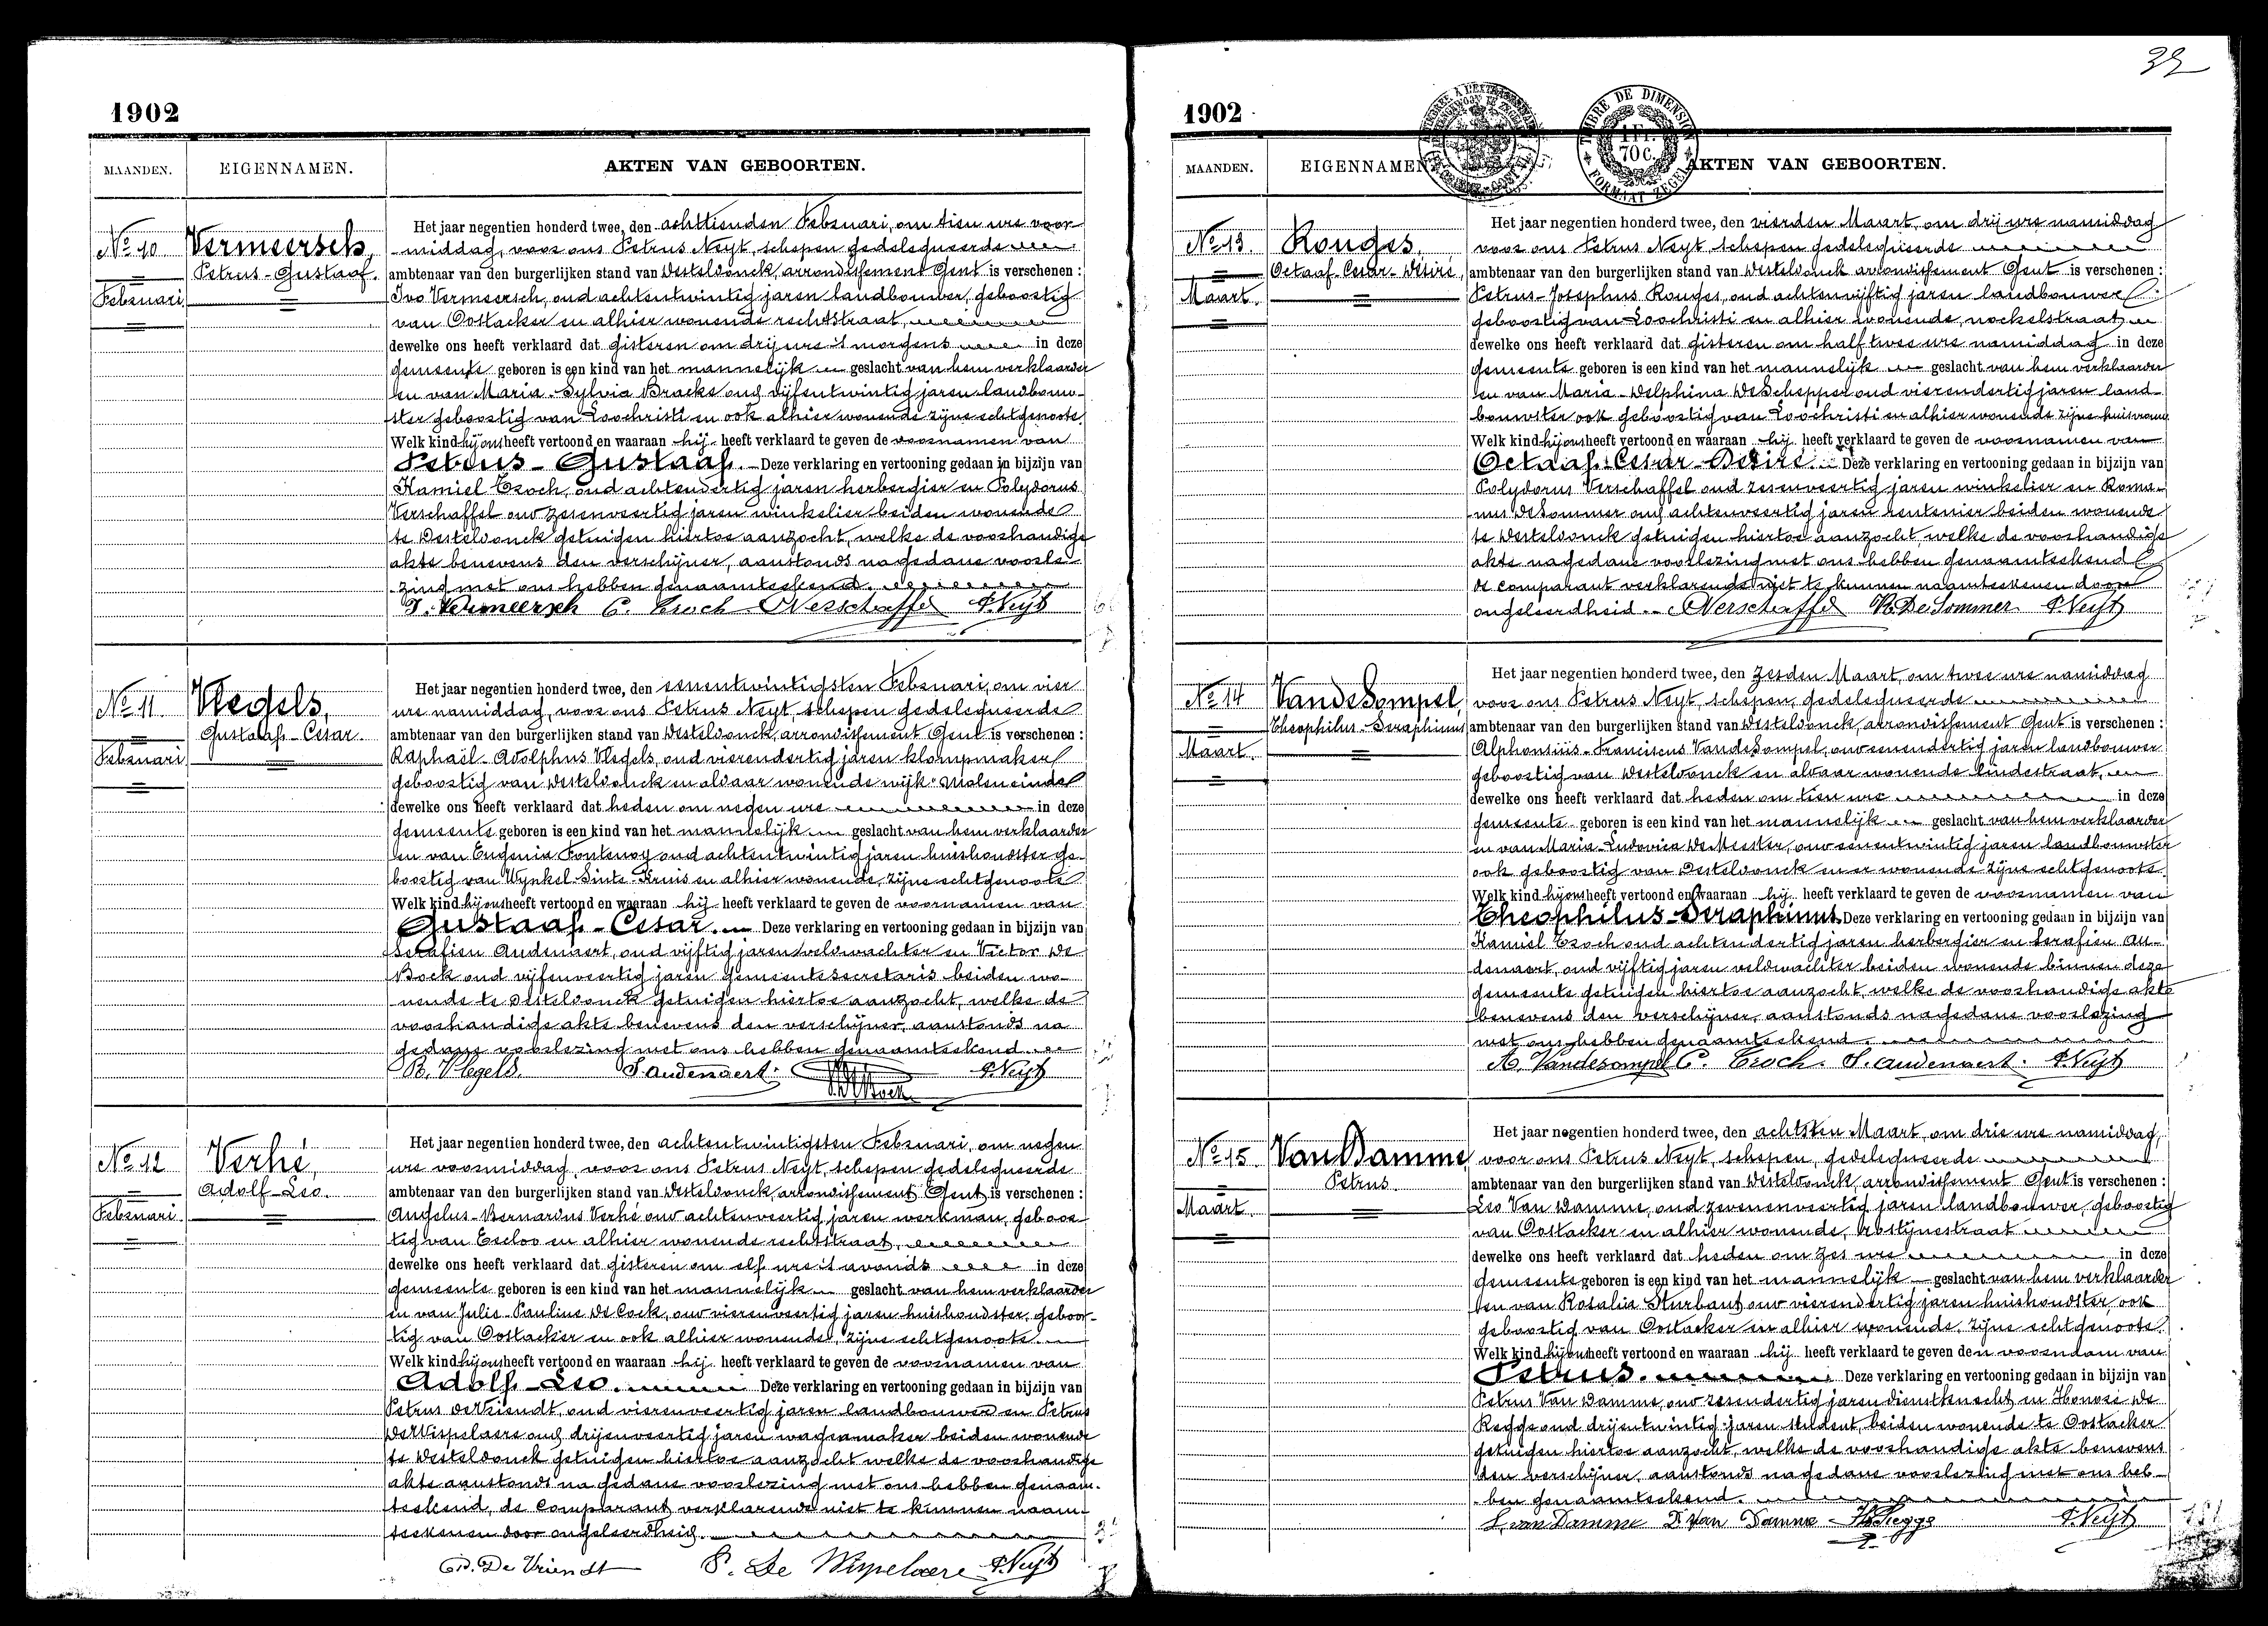 1902
MAANDEN. EIGENNAMEN. AKTEN VAN GEBOORTEN.
No 10 Vermeersch,
Petrus-Gustaaf.
Februari
Het jaar negentien honderd twee, den achttienden Februari, om tien ure voor-
middag, voor ons Petrus Neyt, schepen gedelegueerde
ambtenaar van den burgerlijken stand van Desteldonck, arrondissement Gent is verschenen :
Ivo Vermeersch, oud achtentwintig jaren landbouwer, geboortig
van Oostacker en alhier wonende rechtstraat,
dewelke ons heeft verklaard dat gisteren om drij ure 's morgens in deze
gemeente geboren is een kind van het mannelijk geslacht van hem verklaarder
en van Maria-Sylvia Bracke oud vijfentwintig jaren landbouw-
ster geboortig van Loochristi en ook alhier wonende zijne echtgenoote.
Welk kind hij ons heeft vertoond en waaraan hij heeft verklaard te geven de voornamen van
Petrus-Gustaaf. Deze verklaring en vertooning gedaan in bijzijn van
Kamiel Croch, oud achtendertig jaren herbergier en Polydorus
Verschaffel oud zesenveertig jaren winkelier beiden wonende
te Desteldonck getuigen hiertoe aanzocht, welke de voorhandige
akte benevens den verschijner, aanstonds na gedane voorle-
zing met ons hebben genaamteekend.
I. Vermeersch C. Croch Verschaffel P. Neyt
No 11 Vlegels,
Gustaaf-Cesar.
Februari
Het jaar negentien honderd twee, den eenentwintigsten Februari, om vier
ure namiddag, voor ons Petrus Neyt, schepen gedelegueerde
ambtenaar van den burgerlijken stand van Desteldonck, arrondissement Gent is verschenen :
Raphaël-Adolphus Vlegels, oud vierendertig jaren klompmaker
geboortig van Desteldonck en aldaar wonende wijk-Moleneinde
dewelke ons heeft verklaard dat heden om negen ure in deze
gemeente geboren is een kind van het mannelijk geslacht van hem verklaarder
en van Eugenia Fontenoy oud achtentwintig jaren huishoudster ge-
boortig van Wynkel-Sinte-Kruis en alhier wonende, zijne echtgenoote
Welk kind hij ons heeft vertoond en waaraan hij heeft verklaard te geven de voornamen van
Gustaaf-Cesar. Deze verklaring en vertooning gedaan in bijzijn van
Serafien Audenaert, oud vijftig jaren veldwachter en Victor De
Bock oud vijfenveertig jaren gemeentesecretaris beiden wo-
nende te Desteldonck getuigen hiertoe aanzocht, welke de
voorhandige akte benevens den verschijner, aanstonds na
gedane voorlezing met ons hebben genaamteekend.
R. Vlegels. S. Audenaert. P. Neyt
No 12 Verhé,
Adolf-Leo.
Februari
Het jaar negentien honderd twee, den achtentwintigsten Februari, om negen
ure voormiddag, voor ons Petrus Neyt, schepen gedelegueerde
ambtenaar van den burgerlijken stand van Desteldonck, arrondissement Gent, is verschenen :
Angelus-Bernardus Verhé oud achtenveertig jaren werkman, geboor-
tig van Eecloo en alhier wonende rechtstraat,
dewelke ons heeft verklaard dat gisteren om elf ure 's avonds in deze
gemeente geboren is een kind van het mannelijk geslacht van hem verklaarder
en van Julie-Pauline De Cock, oud vierenveertig jaren huishoudster, geboor-
tig van Oostacker en ook alhier wonende, zijne echtgenoote.
Welk kind hij ons heeft vertoond en waaraan hij heeft verklaard te geven de voornamen van
Adolf-Leo. Deze verklaring en vertooning gedaan in bijzijn van
Petrus De Vriendt, oud vierenveertig jaren landbouwer en Petrus
De Wispelaere oud drijenveertig jaren wagenmaker beiden wonende
te Desteldonck getuigen hiertoe aanzocht welke de voorhandige
akte aanstonds na gedane voorlezing met ons hebben genaam-
teekend, de comparant verklarende niet te kunnen naam-
teekenen door ongeleerdheid.
P. De Vriendt P. De Wispelaere P. Neyt
32
1902
TIMBRE DE DIMENSION
1 Fr.
70 c.
FORMAAT ZEGEL
MAANDEN. EIGENNAMEN AKTEN VAN GEBOORTEN.
No 13. Rouges,
Octaaf-Cesar-Désiré,
Maart.
Het jaar negentien honderd twee, den vierden Maart, om drij ure namiddag
voor ons Petrus Neyt, schepen gedelegueerde
ambtenaar van den burgerlijken stand van Desteldonck arrondissement Gent is verschenen :
Petrus-Josephus Rouges, oud achtenvijftig jaren landbouwer
geboortig van Loochristi en alhier wonende, nockelstraat
dewelke ons heeft verklaard dat gisteren om half twee ure namiddag in deze
gemeente geboren is een kind van het mannelijk geslacht van hem verklaarder
en van Maria-Delphina De Schepper oud vierendertig jaren land-
bouwster ook geboortig van Loochristi en alhier wonende zijne huisvrouw
Welk kind hij ons heeft vertoond en waaraan hij heeft verklaard te geven de voornamen van
Octaaf-Cesar-Désiré. Deze verklaring en vertooning gedaan in bijzijn van
Polydorus Verschaffel oud zesenveertig jaren winkelier en Roma-
nus De Sommer oud achtenveertig jaren rentenier beiden wonende
te Desteldonck getuigen hiertoe aanzocht welke de voorhandige
akte na gedane voorlezing met ons hebben genaamteekend
de comparant verklarende niet te kunnen naamteekenen door
ongeleerdheid. Verschaffel R. De Sommer P. Neyt
No 14 VandeSompel,
Theophilus-Seraphinus
Maart.
Het jaar negentien honderd twee, den zesden Maart, om twee ure namiddag
voor ons Petrus Neyt, schepen, gedelegueerde
ambtenaar van den burgerlijken stand van Desteldonck, arrondissement Gent is verschenen :
Alphonsius-Franciscus VandeSompel, oud eenendertig jaren landbouwer
geboortig van Desteldonck en aldaar wonende lindestraat,
dewelke ons heeft verklaard dat heden om tien ure in deze
gemeente geboren is een kind van het mannelijk geslacht van hem verklaarder
en van Maria-Ludovica De Meester, oud eenentwintig jaren landbouwster
ook geboortig van Desteldonck en er wonende zijne echtgenoote
Welk kind hij ons heeft vertoond en waaraan hij heeft verklaard te geven de voornamen van
Theophilus-Seraphinus Deze verklaring en vertooning gedaan in bijzijn van
Kamiel Croch oud achtendertig jaren herbergier en Serafien Au-
denaert, oud vijftig jaren veldwachter beiden wonende binnen deze
gemeente getuigen hiertoe aanzocht, welke de voorhandige akte
benevens den verschijner, aanstonds na gedane voorlezing
met ons hebben genaamteekend.
A. Vandesompel C. Croch. S. Audenaert. P. Neyt
No 15 VanDamme,
Petrus.
Maart.
Het jaar negentien honderd twee, den achtsten Maart, om drie ure namiddag,
voor ons Petrus Neyt, schepen, gedelegueerde
ambtenaar van den burgerlijken stand van Desteldonck, arrondissement Gent is verschenen :
Leo Van Damme, oud zevenenveertig jaren landbouwer, geboortig
van Oostacker en alhier wonende, rostijnestraat
dewelke ons heeft verklaard dat heden om zes ure in deze
gemeente geboren is een kind van het mannelijk geslacht van hem verklaarder
en van Rosalia Sturbaut oud vierendertig jaren huishoudster, ook
geboortig van Oostacker en alhier wonende, zijne echtgenoote.
Welk kind hij ons heeft vertoond en waaraan hij heeft verklaard te geven den voornaam van
Petrus. Deze verklaring en vertooning gedaan in bijzijn van
Petrus Van Damme, oud zesendertig jaren dienstknecht en Honoré De
Regge oud drijentwintig jaren student, beiden wonende te Oostacker
getuigen hiertoe aanzocht, welke de voorhandige akte benevens
den verschijner, aanstonds na gedane voorlezing met ons heb-
ben genaamteekend.
L. van Damme P. Van Damme P. Neyt